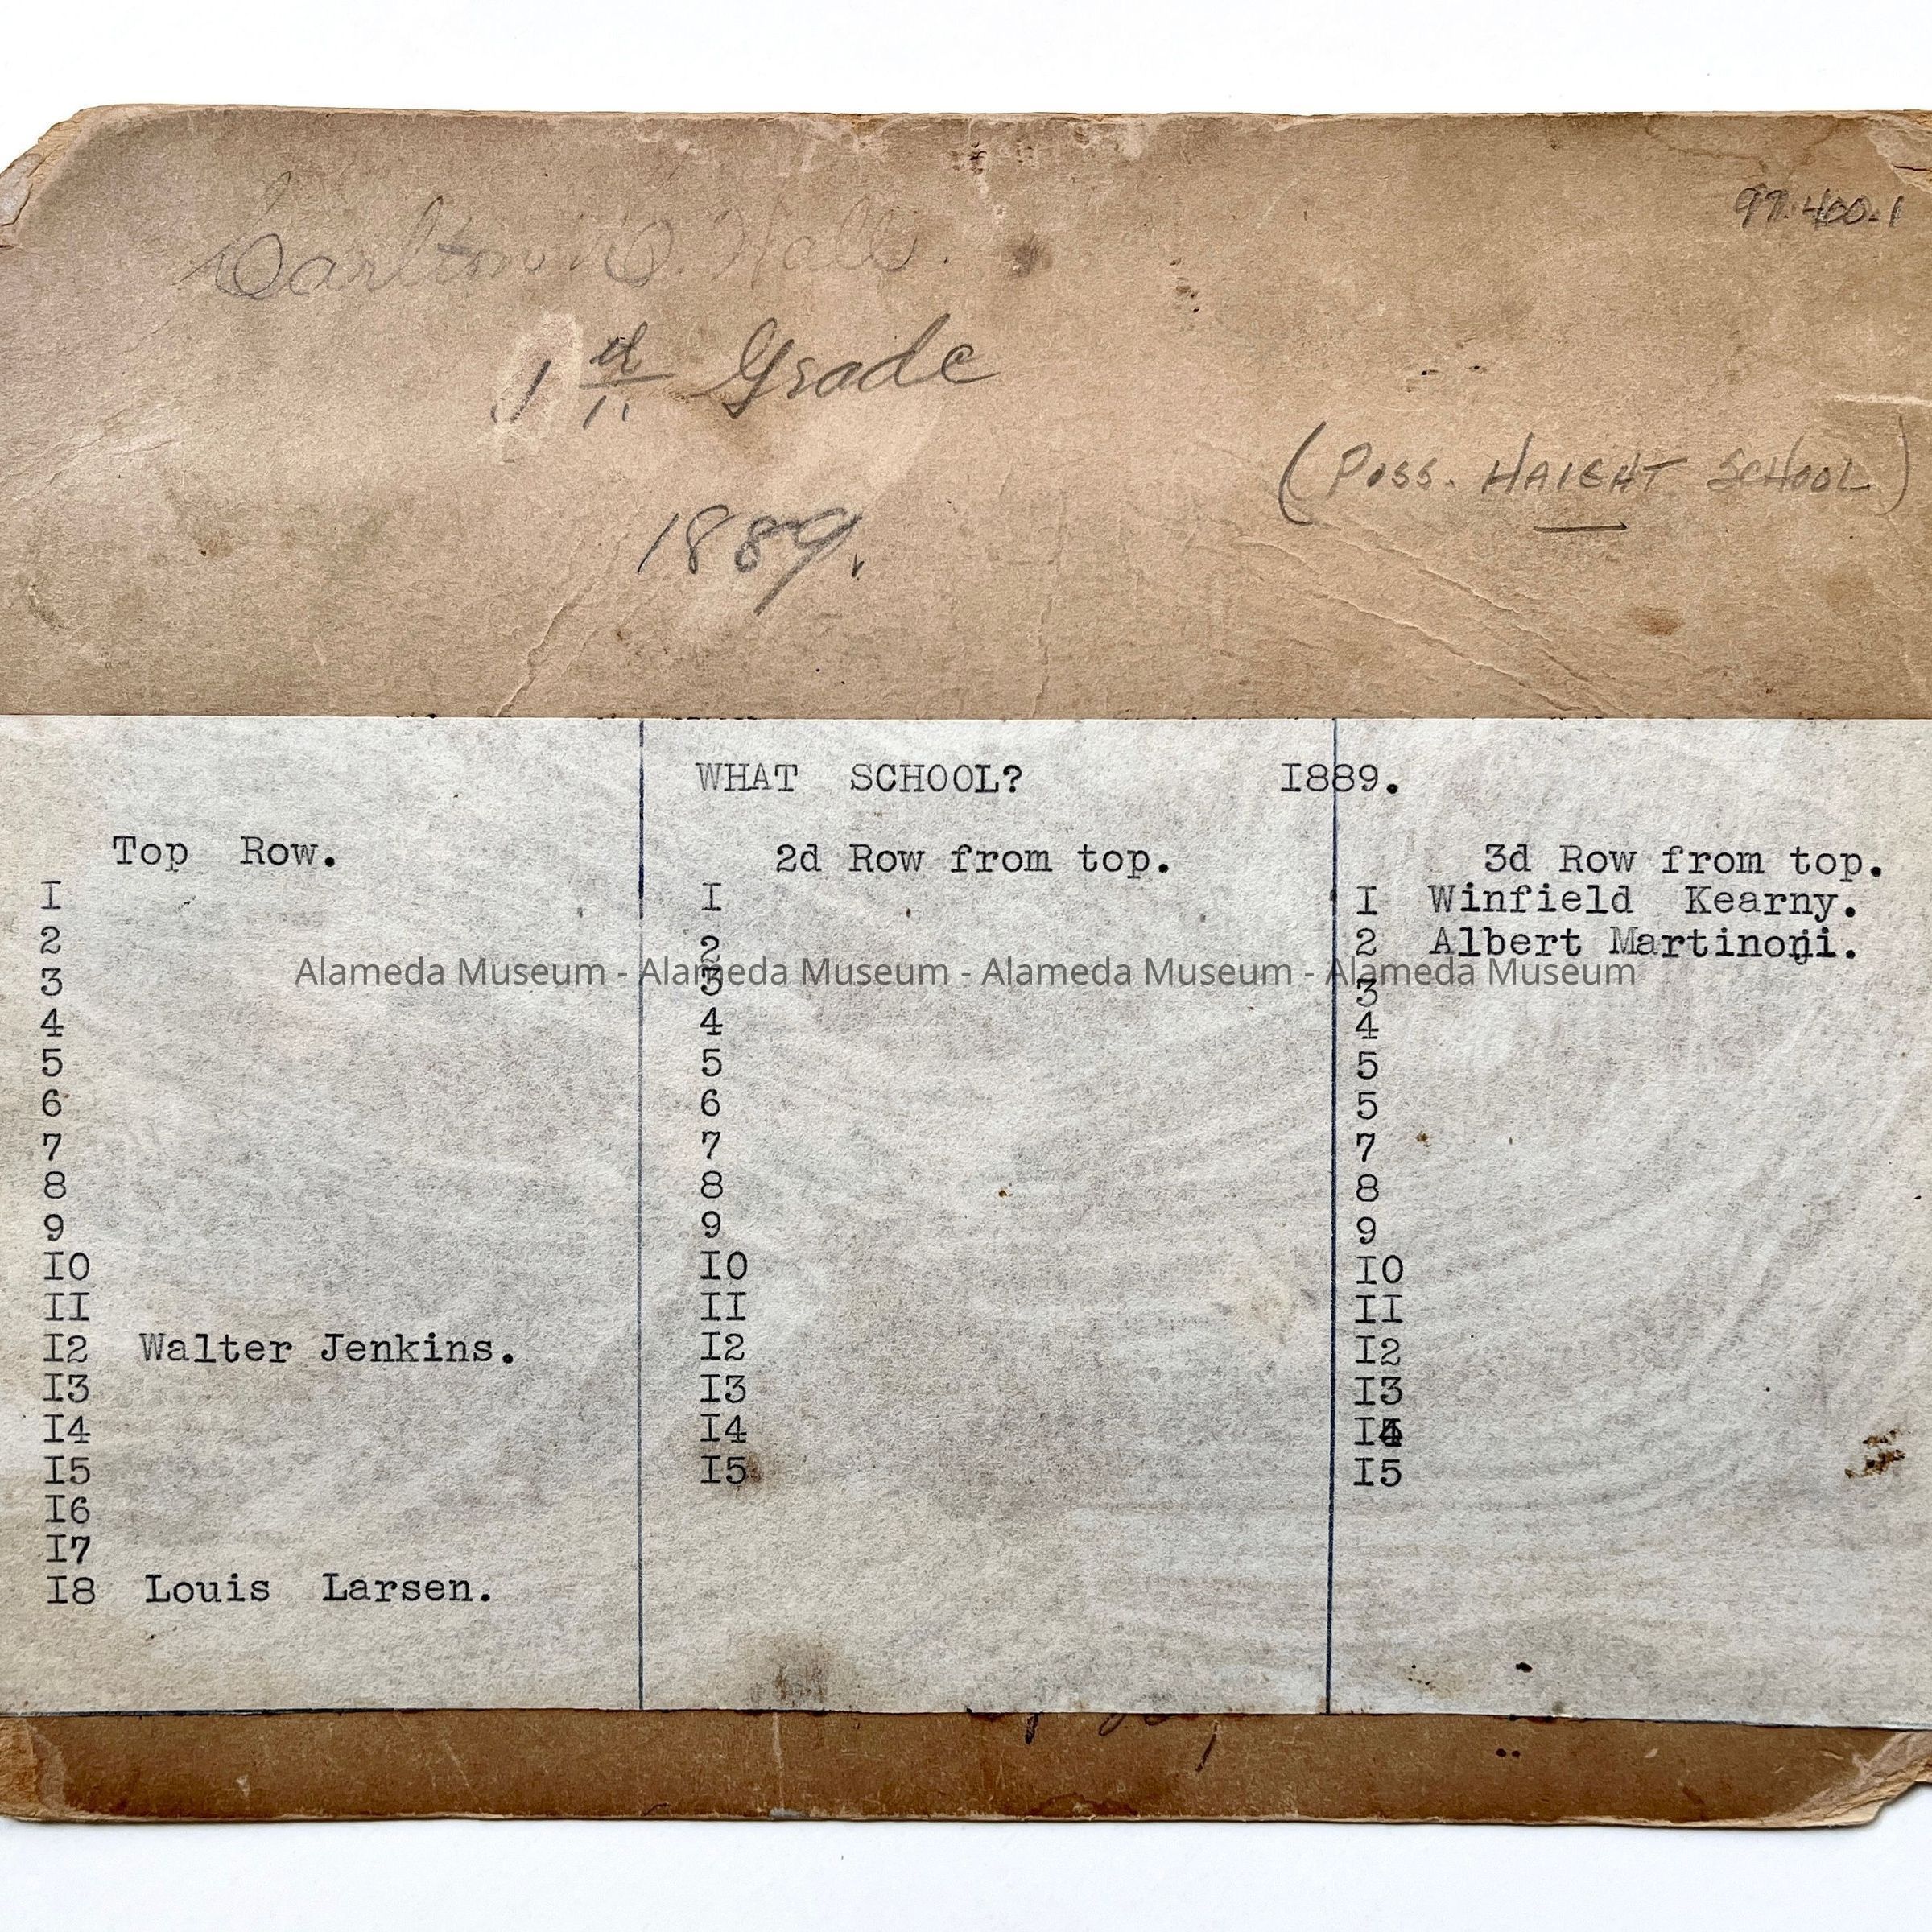 97.400.1
Carlton Hall.
1st Grade
(POSS. HAIGHT SCHOOL)
1889.
WHAT SCHOOL? I889.
Top Row.
I
2
3
4
5
6
7
8
9
I0
II
I2 Walter Jenkins.
I3
I4
I5
I6
I7
I8 Louis Larsen.
2d Row from top.
I
2
3
4
5
6
7
8
9
I0
II
I2
I3
I4
I5
3d Row from top.
I Winfield Kearny.
2 Albert Martinoni.
3
4
5
5
7
8
9
I0
II
I2
I3
I4
I5
Alameda Museum - Alameda Museum - Alameda Museum - Alameda Museum